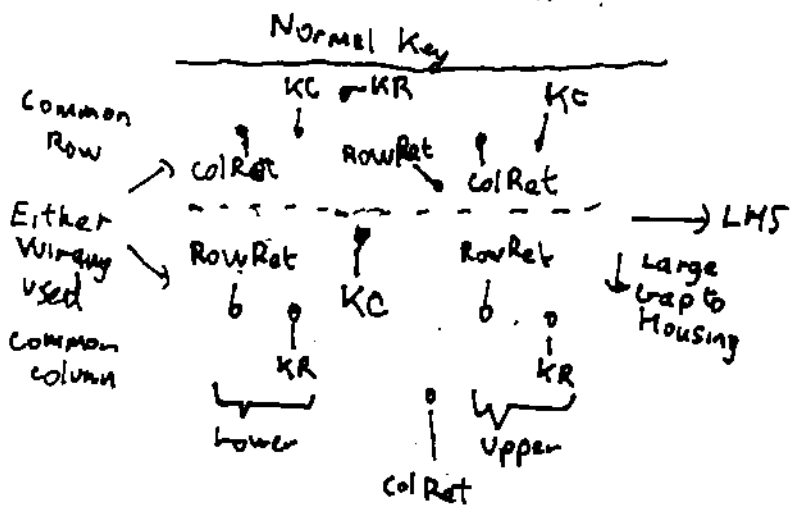 Normal Key
KC or KR
KC
Common
Row
ColRet
RowRet
ColRet
Either
Wiring
used
LHS
RowRet
KC
RowRet
Large
Gap to
Housing
Common
column
KR
KR
Lower
Upper
ColRet